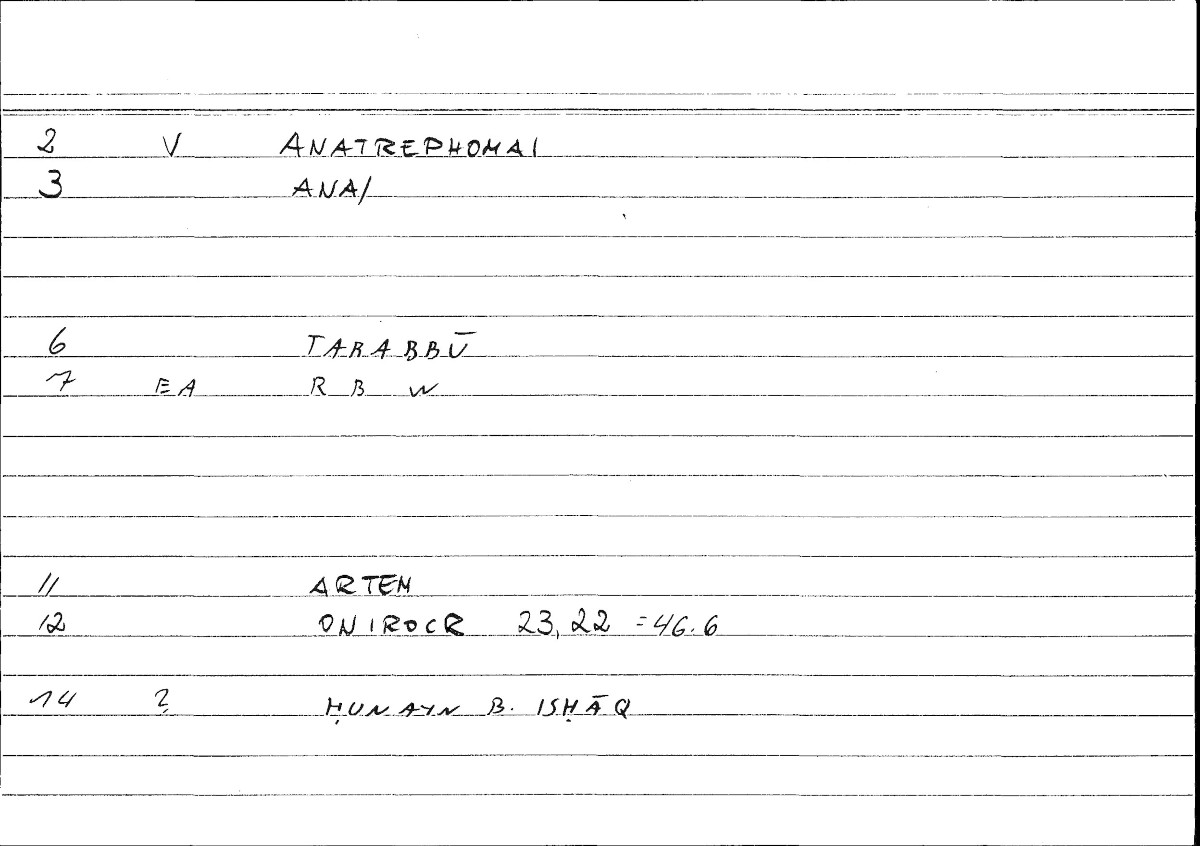 2 V ANATREPHOMAI
3 ANA/
6 TARABBŪ
7 EA R B W
11 ARTEM
12 ONIROCR 23,22 =46.6
14 ? ḤUNAYN B. ISḤĀQ